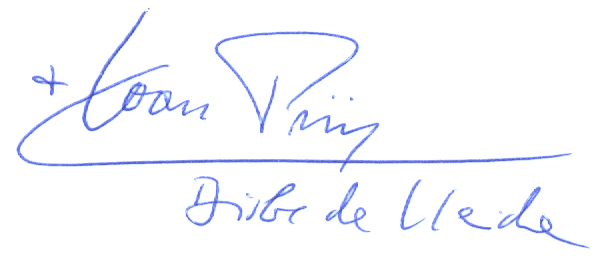 + Joan Piris
Bisbe de Lleida